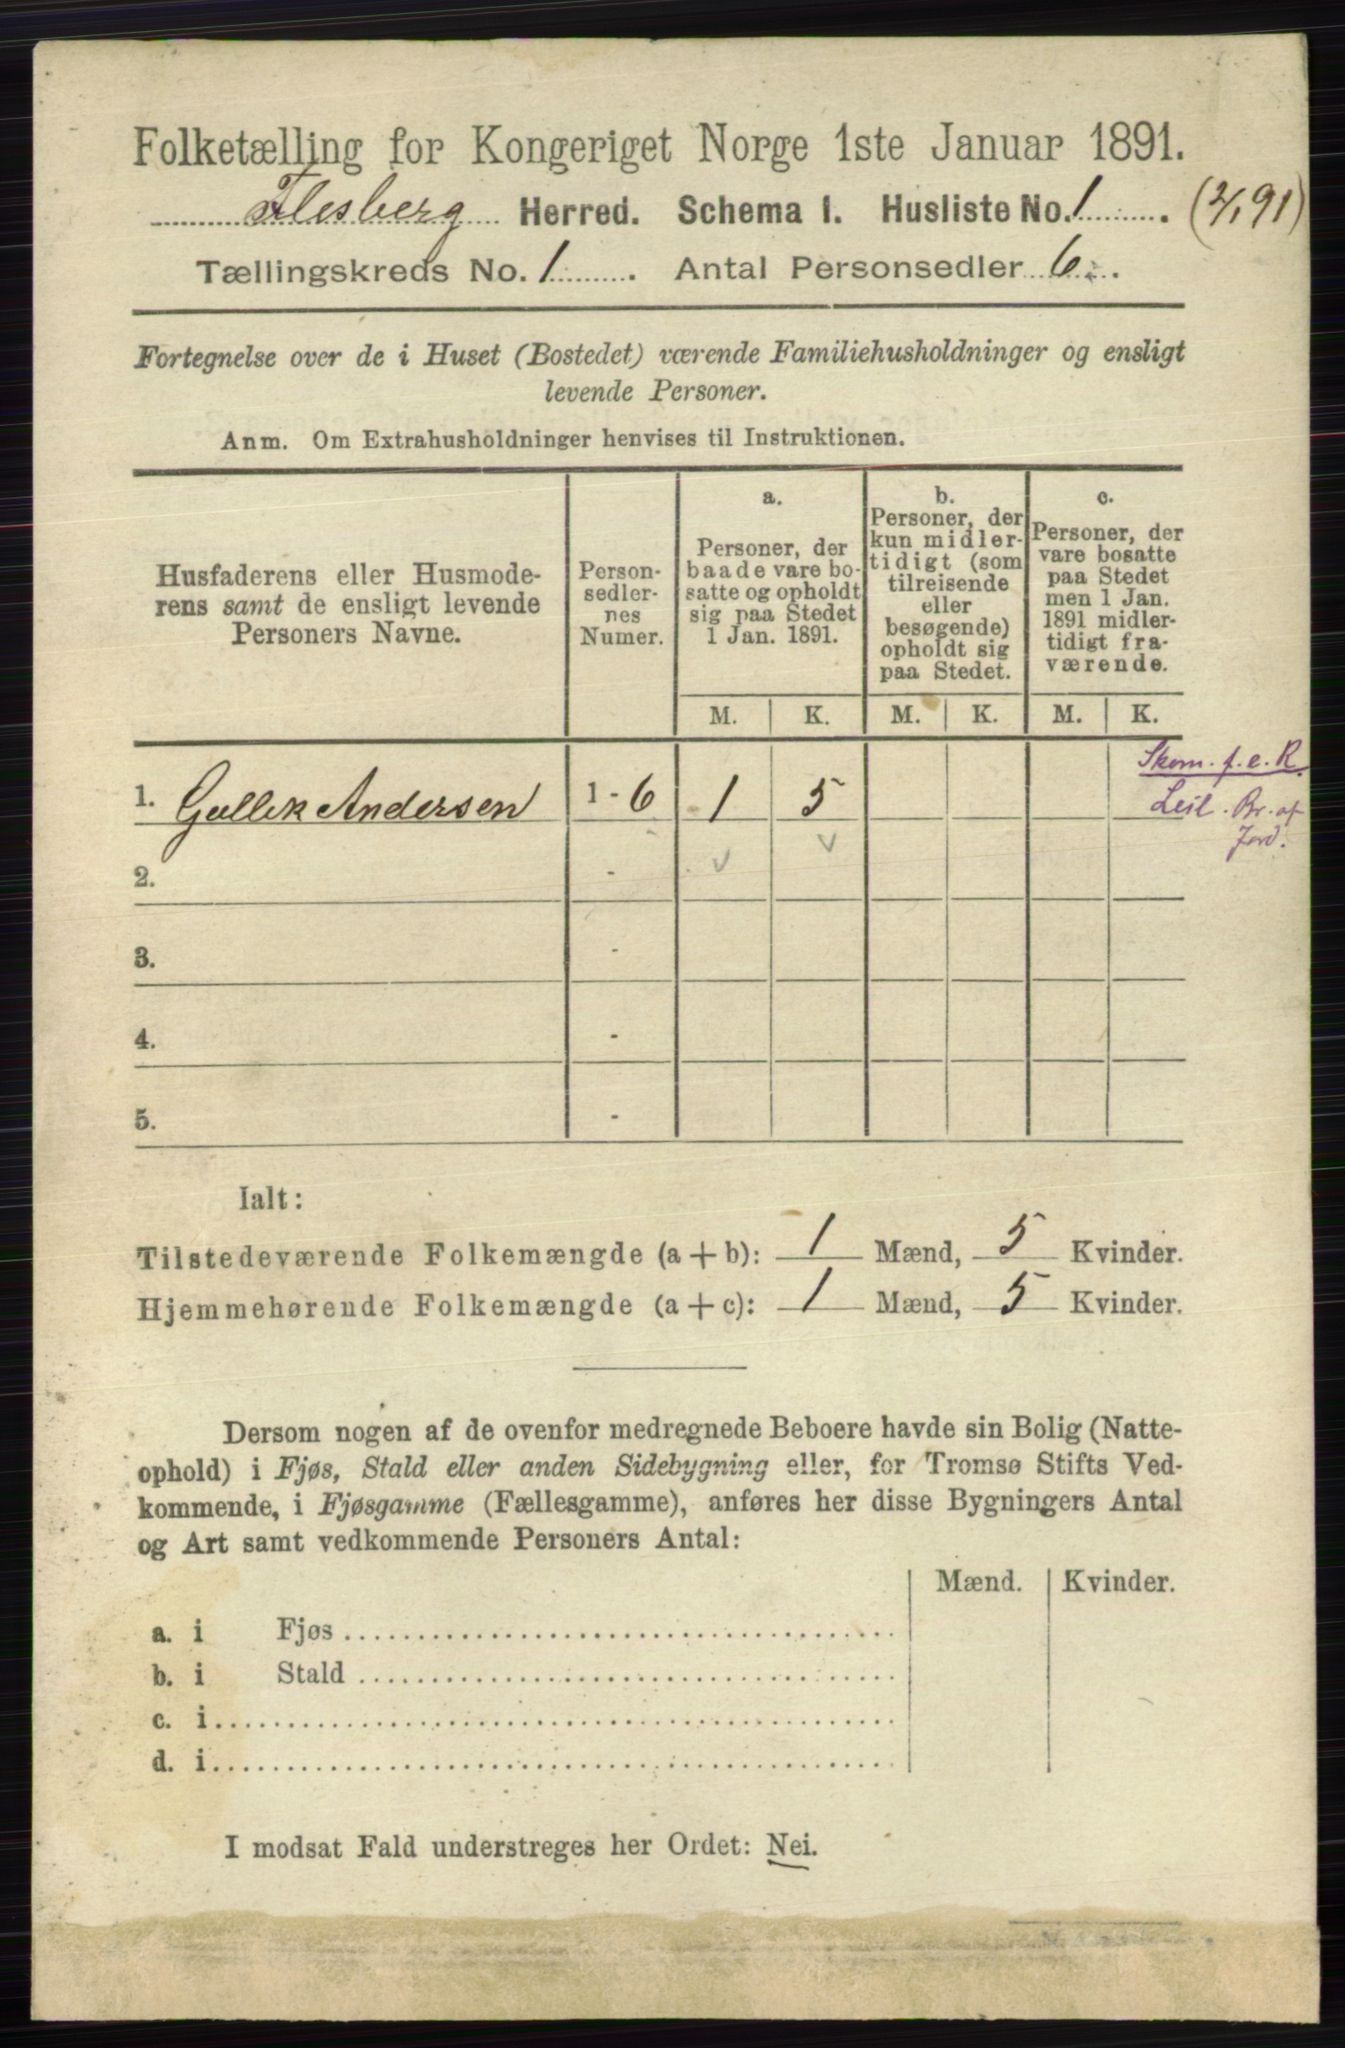 Folketælling for Kongeriget Norge 1ste Januar 1891.
Flesberg Herred. Schema I. Husliste No. 1. (2/1 91)
Tællingskreds No. 1. Antal Personsedler 6.
Fortegnelse over de i Huset (Bostedet) værende Familiehusholdninger og ensligt
levende Personer.
Anm. Om Extrahusholdninger henvises til Instruktionen.
Husfaderens eller Husmode-
rens samt de ensligt levende
Personers Navne.
Person-
sedler-
nes
Numer.
a.
Personer, der
baade vare bo-
satte og opholdt
sig paa Stedet
1 Jan. 1891.
b.
Personer, der
kun midler-
tidigt (som
tilreisende
eller
besøgende)
opholdt sig
paa Stedet.
c.
Personer, der
vare bosatte
paa Stedet
men 1 Jan.
1891 midler-
tidigt fra-
værende.
M. K. M. K. M. K.
1. Gullik Andersen 1 - 6 1 5
Skom. f. e. R.
Leil. Br. af
Jord.
2. -
3. -
4. -
5. -
Ialt:
Tilstedeværende Folkemængde (a + b): 1 Mænd, 5 Kvinder.
Hjemmehørende Folkemængde (a + c): 1 Mænd, 5 Kvinder.
Dersom nogen af de ovenfor medregnede Beboere havde sin Bolig (Natte-
ophold) i Fjøs, Stald eller anden Sidebygning eller, for Tromsø Stifts Ved-
kommende, i Fjøsgamme (Fællesgamme), anføres her disse Bygningers Antal
og Art samt vedkommende Personers Antal:
Mænd. Kvinder.
a. i Fjøs
b. i Stald
c. i
d. i
I modsat Fald understreges her Ordet: Nei.